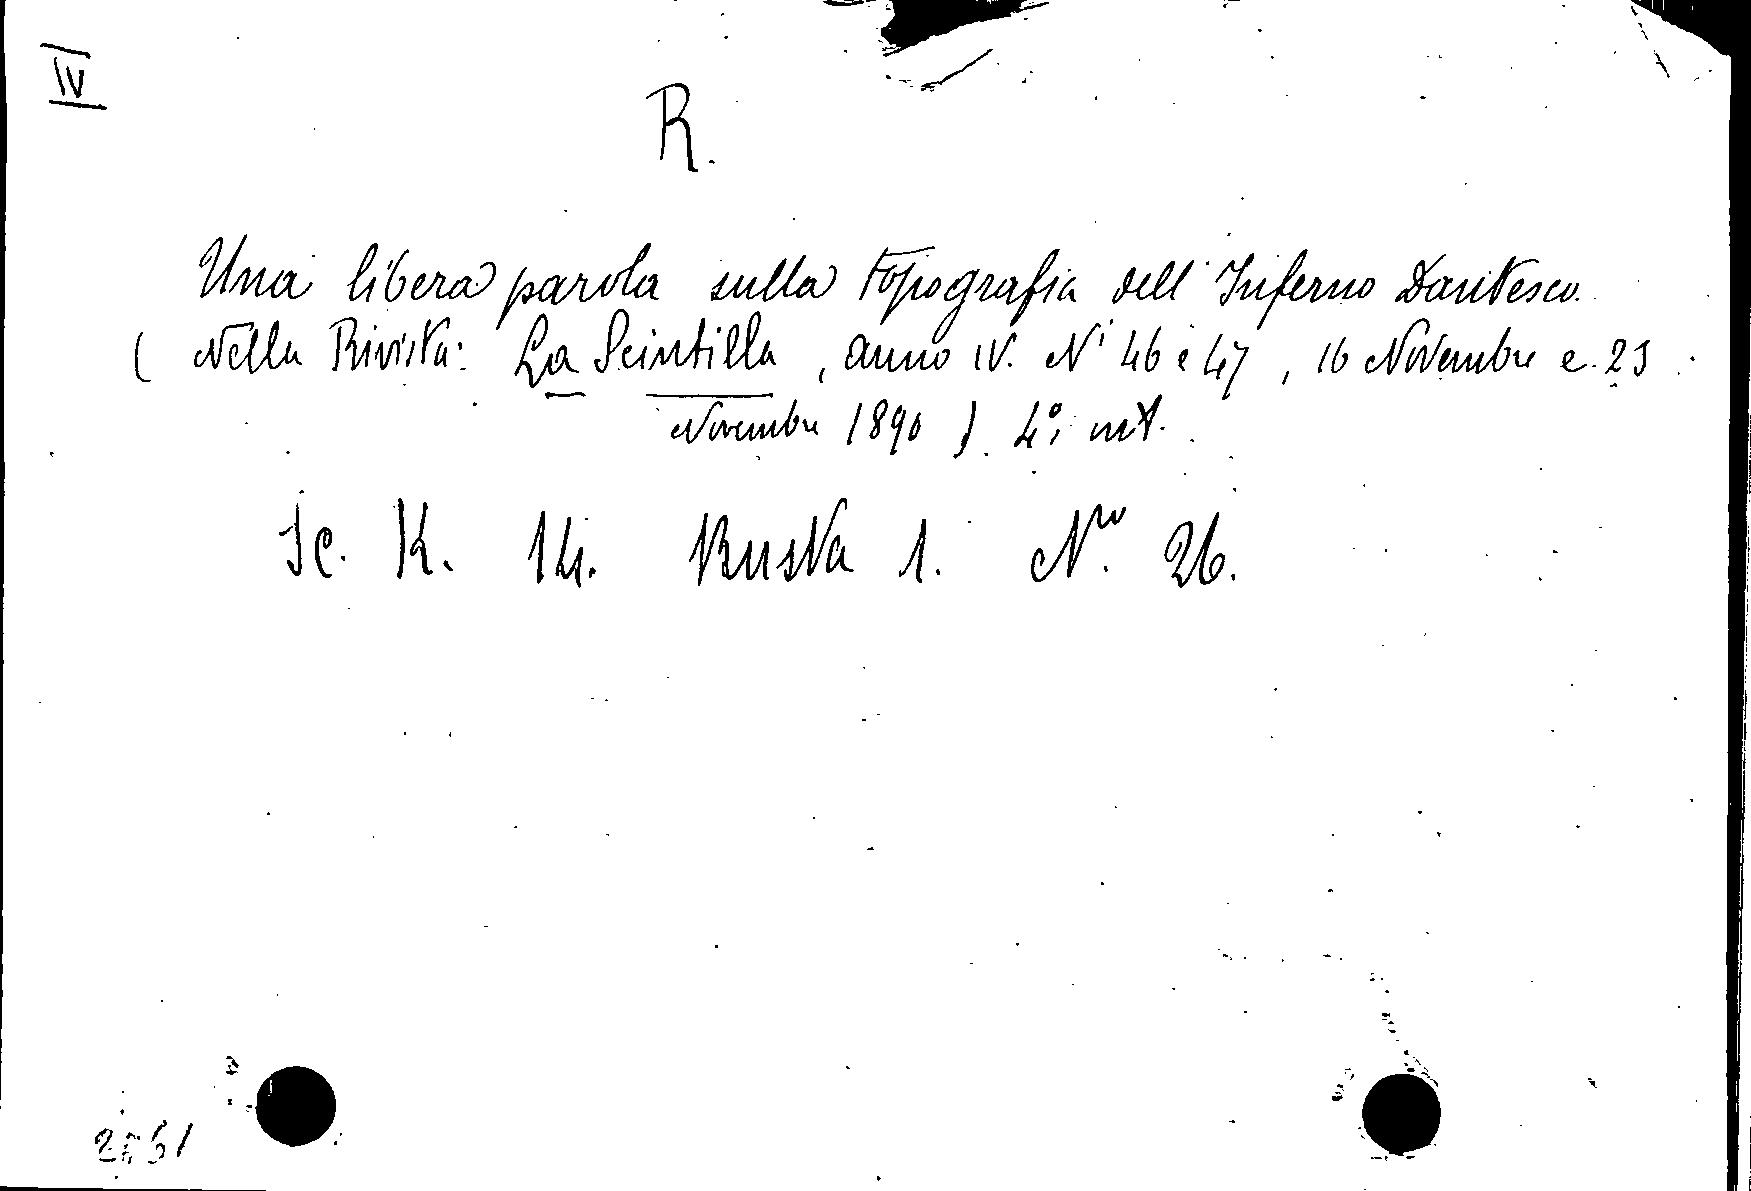 IV
R.
Una libera parola sulla topografia dell' Inferno Dantesco.
(Nella Rivista: La Scintilla, anno IV. Ni 46 e 47, 16 Novembre e 23
Novembre 1890) 4º; mt.
Sc. K. 14. Busta 1. Nro 26.